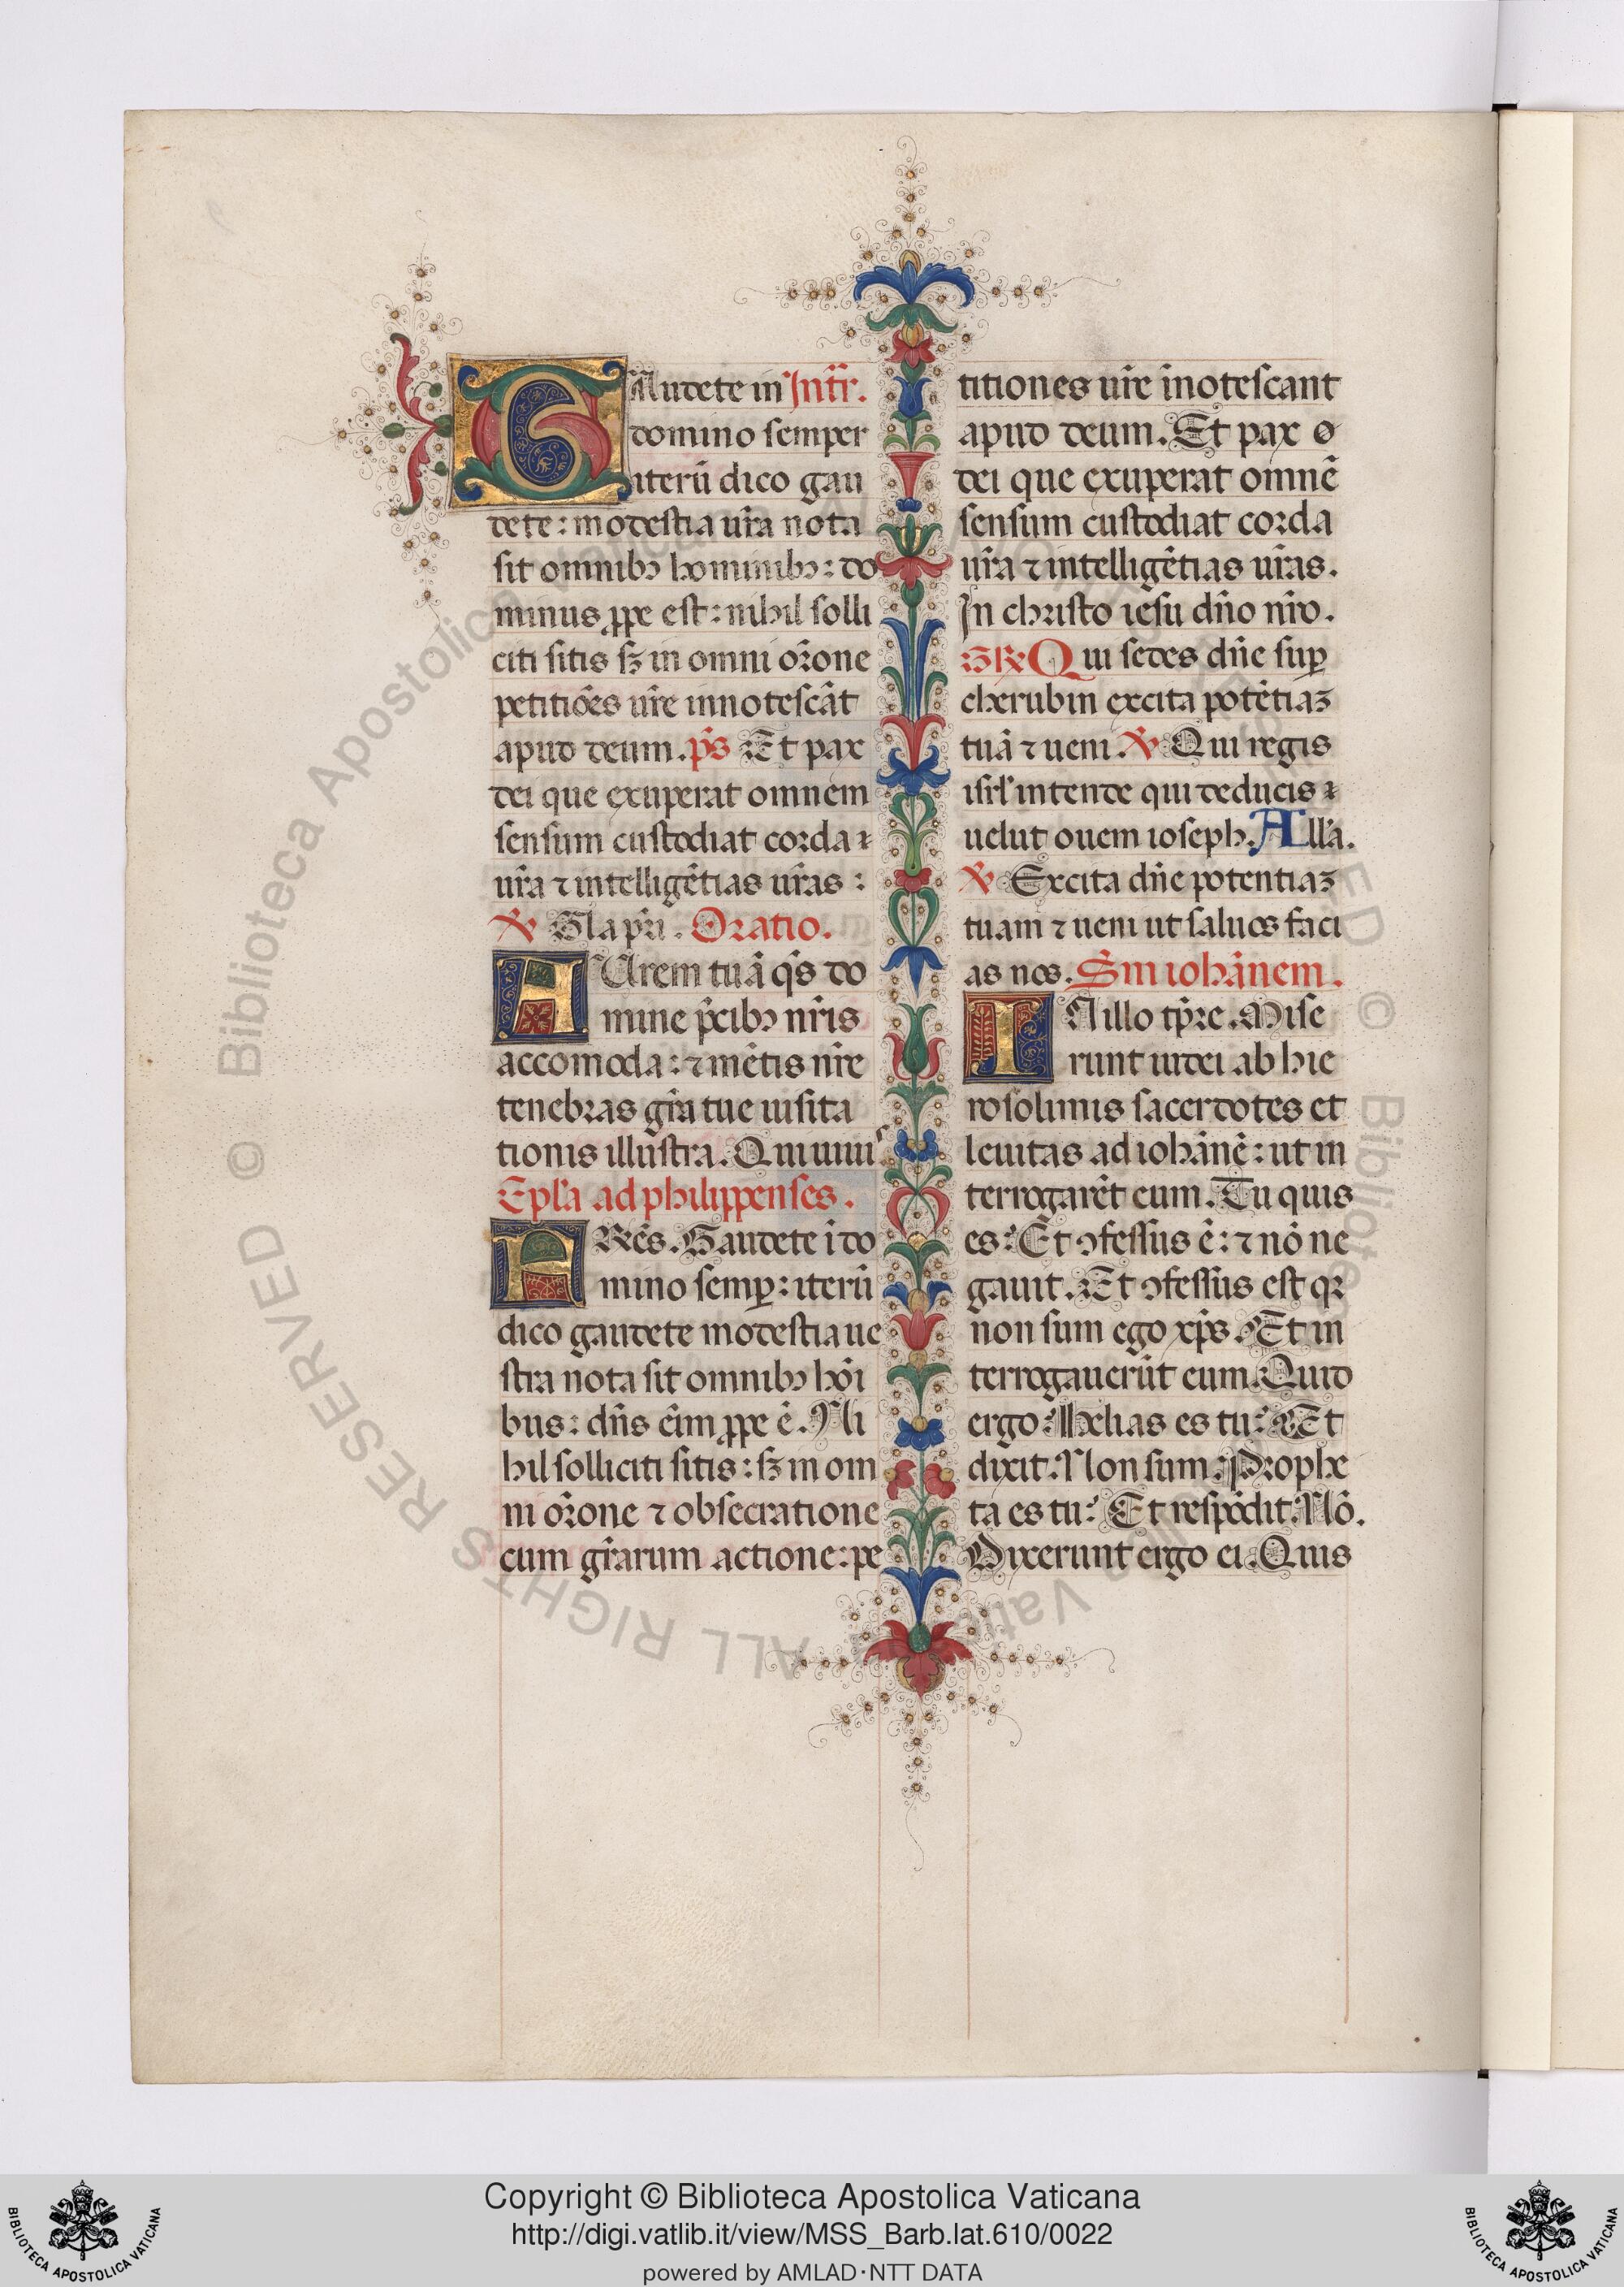 GAudete in Intr̃.
domino semper
iterũ dico gau
dete: modestia ur̃a nota
sit omnibꝫ hominibꝫ: do
minus ꝓpe est: nihil solli
citi sitis sꝫ in omni or̃one
petitiões ur̃e innotescãt
apud deum. p̃s Et pax
dei que exuperat omnem
sensum custodiat corda
ur̃a ⁊ intelligẽtias ur̃as:
℣ Gl̃a pr̃i. Oratio.
AUrem tuã q̃s do
mine p̃cibꝫ nr̃is
accomoda: ⁊ mẽtis nr̃e
tenebras gr̃a tue uisita
tionis illustra. Qui uiuis
Epl̃a ad philippenses.
FRẽs. Gaudete ĩ do
mino semꝑ: iterũ
dico gaudete modestia ue
stra nota sit omnibꝫ hõi
bus: dñs eĩm ꝓpe ẽ. Ni
hil solliciti sitis: sꝫ in om
ni or̃one ⁊ obsecratione
cum gr̃arum actione: pe
titiones ur̃e ĩnotescant
apud deum. Et pax
dei que exuperat omnẽ
sensum custodiat corda
ur̃a ⁊ intelligẽtias ur̃as.
In christo iesu dño nr̃o.
GR̃ Qui sedes dñe suꝑ
cherubin excita potẽtiaꝫ
tuã ⁊ ueni. ℣ Qui regis
isrl̃ intende qui deducis
uelut ouem ioseph. All̃a.
℣ Excita dñe potentiaꝫ
tuam ⁊ ueni ut saluos faci
as nos. S̃m iohãnem.
IN illo tp̃re. Mise
runt iudei ab hie
rosolimis sacerdotes et
leuitas ad iohãnẽ: ut in
terrogarẽt eum. Tu quis
es? Et ꝯfessus ẽ: ⁊ nõ ne
gauit. Et ꝯfessus est qꝛ
non sum ego xp̃s. Et in
terrogauerũt eum. Quid
ergo? Helias es tu? Et
dixit. Non sum. Prophe
ta es tu? Et respõdit. Nõ.
Dixerunt ergo ei. Quis
© Biblioteca Apostolica Vaticana ALL RIGHTS RESERVED
Copyright © Biblioteca Apostolica Vaticana
http://digi.vatlib.it/view/MSS_Barb.lat.610/0022
powered by AMLAD·NTT DATA
BIBLIOTECA APOSTOLICA VATICANA
BIBLIOTECA APOSTOLICA VATICANA